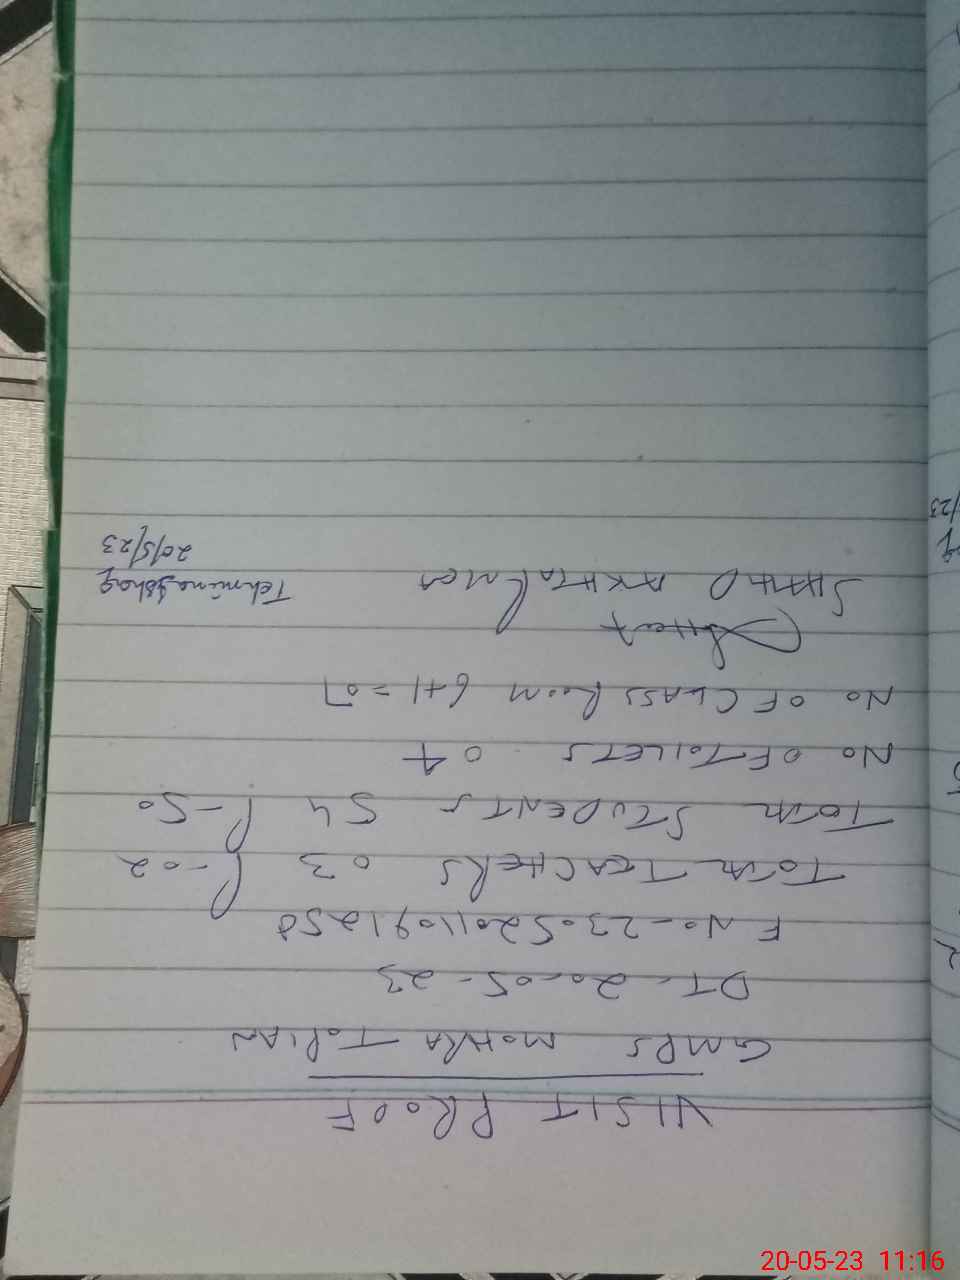 VISIT PROOF
GMPS MOHRA TOPIAN
DT- 20-05-23
F No-23052011091258
TOTAL TEACHERS 03 P-02
TOTAL STUDENTS 54 P-50
No OF TOILETS 04
No OF CLASS ROOM 6+1=07
SHHD AKHTAR
Tehmina Ishaq
20/5/23
/23
20-05-23 11:16